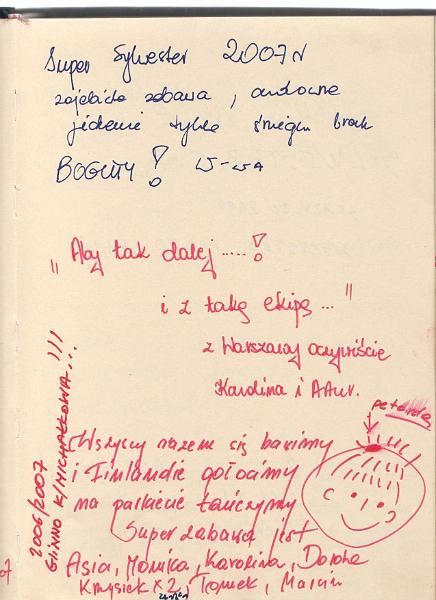 Super Sylwester 2007r
zajebista zabawa, cudowne
jedzenie tylko śniegu brak
BOGUTY! W-WA
"Aby tak dalej.....!
i z taką ekipą..."
z Warszawy oczywiście
Karolina i
petarda
Wszyscy razem się bawimy
i Finlandię gołocimy
na parkiecie tańczymy
Super zabawa jest
Asia, Monika, Karolina, Dorota
Krzysiek x 2, Tomek, Marcin
2006/2007
GLINNO K/MICHAŁKOWA...!!!